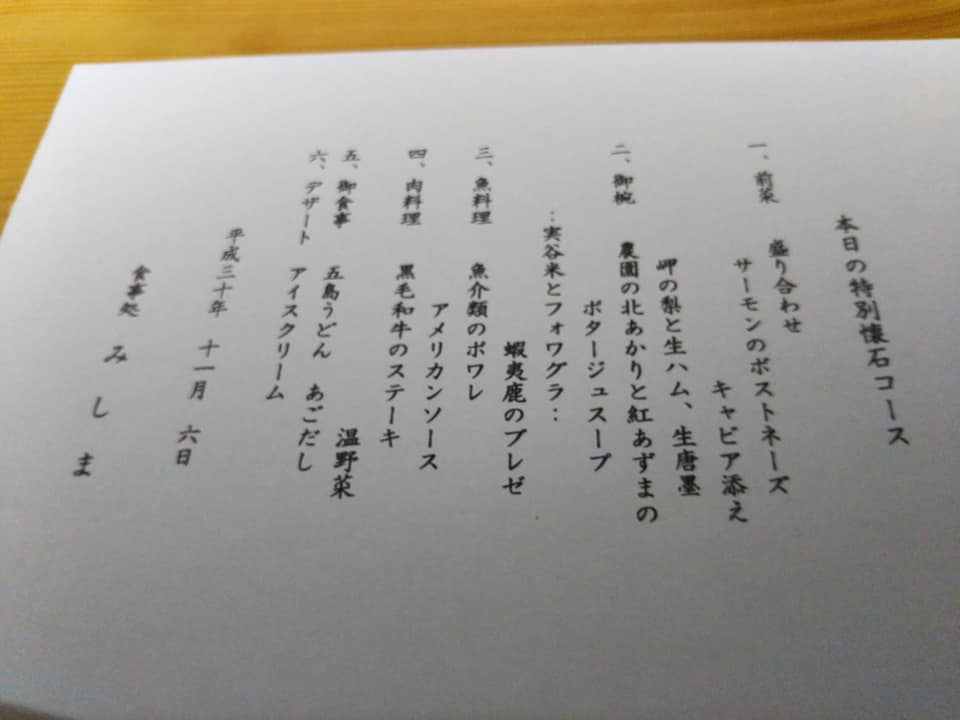 本日の特別懐石コース
一、前菜 盛り合わせ
サーモンのボストネーズ
キャビア添え
岬の梨と生ハム、生唐墨
二、御椀 農園の北あかりと紅あずまの
ポタージュスープ
：実谷米とフォワグラ：
蝦夷鹿のブレゼ
三、魚料理 魚介類のポワレ
アメリカンソース
四、肉料理 黒毛和牛のステーキ
温野菜
五、御食事 五島うどん あごだし
六、デザート アイスクリーム
平成三十年 十一月 六日
食事処 みしま